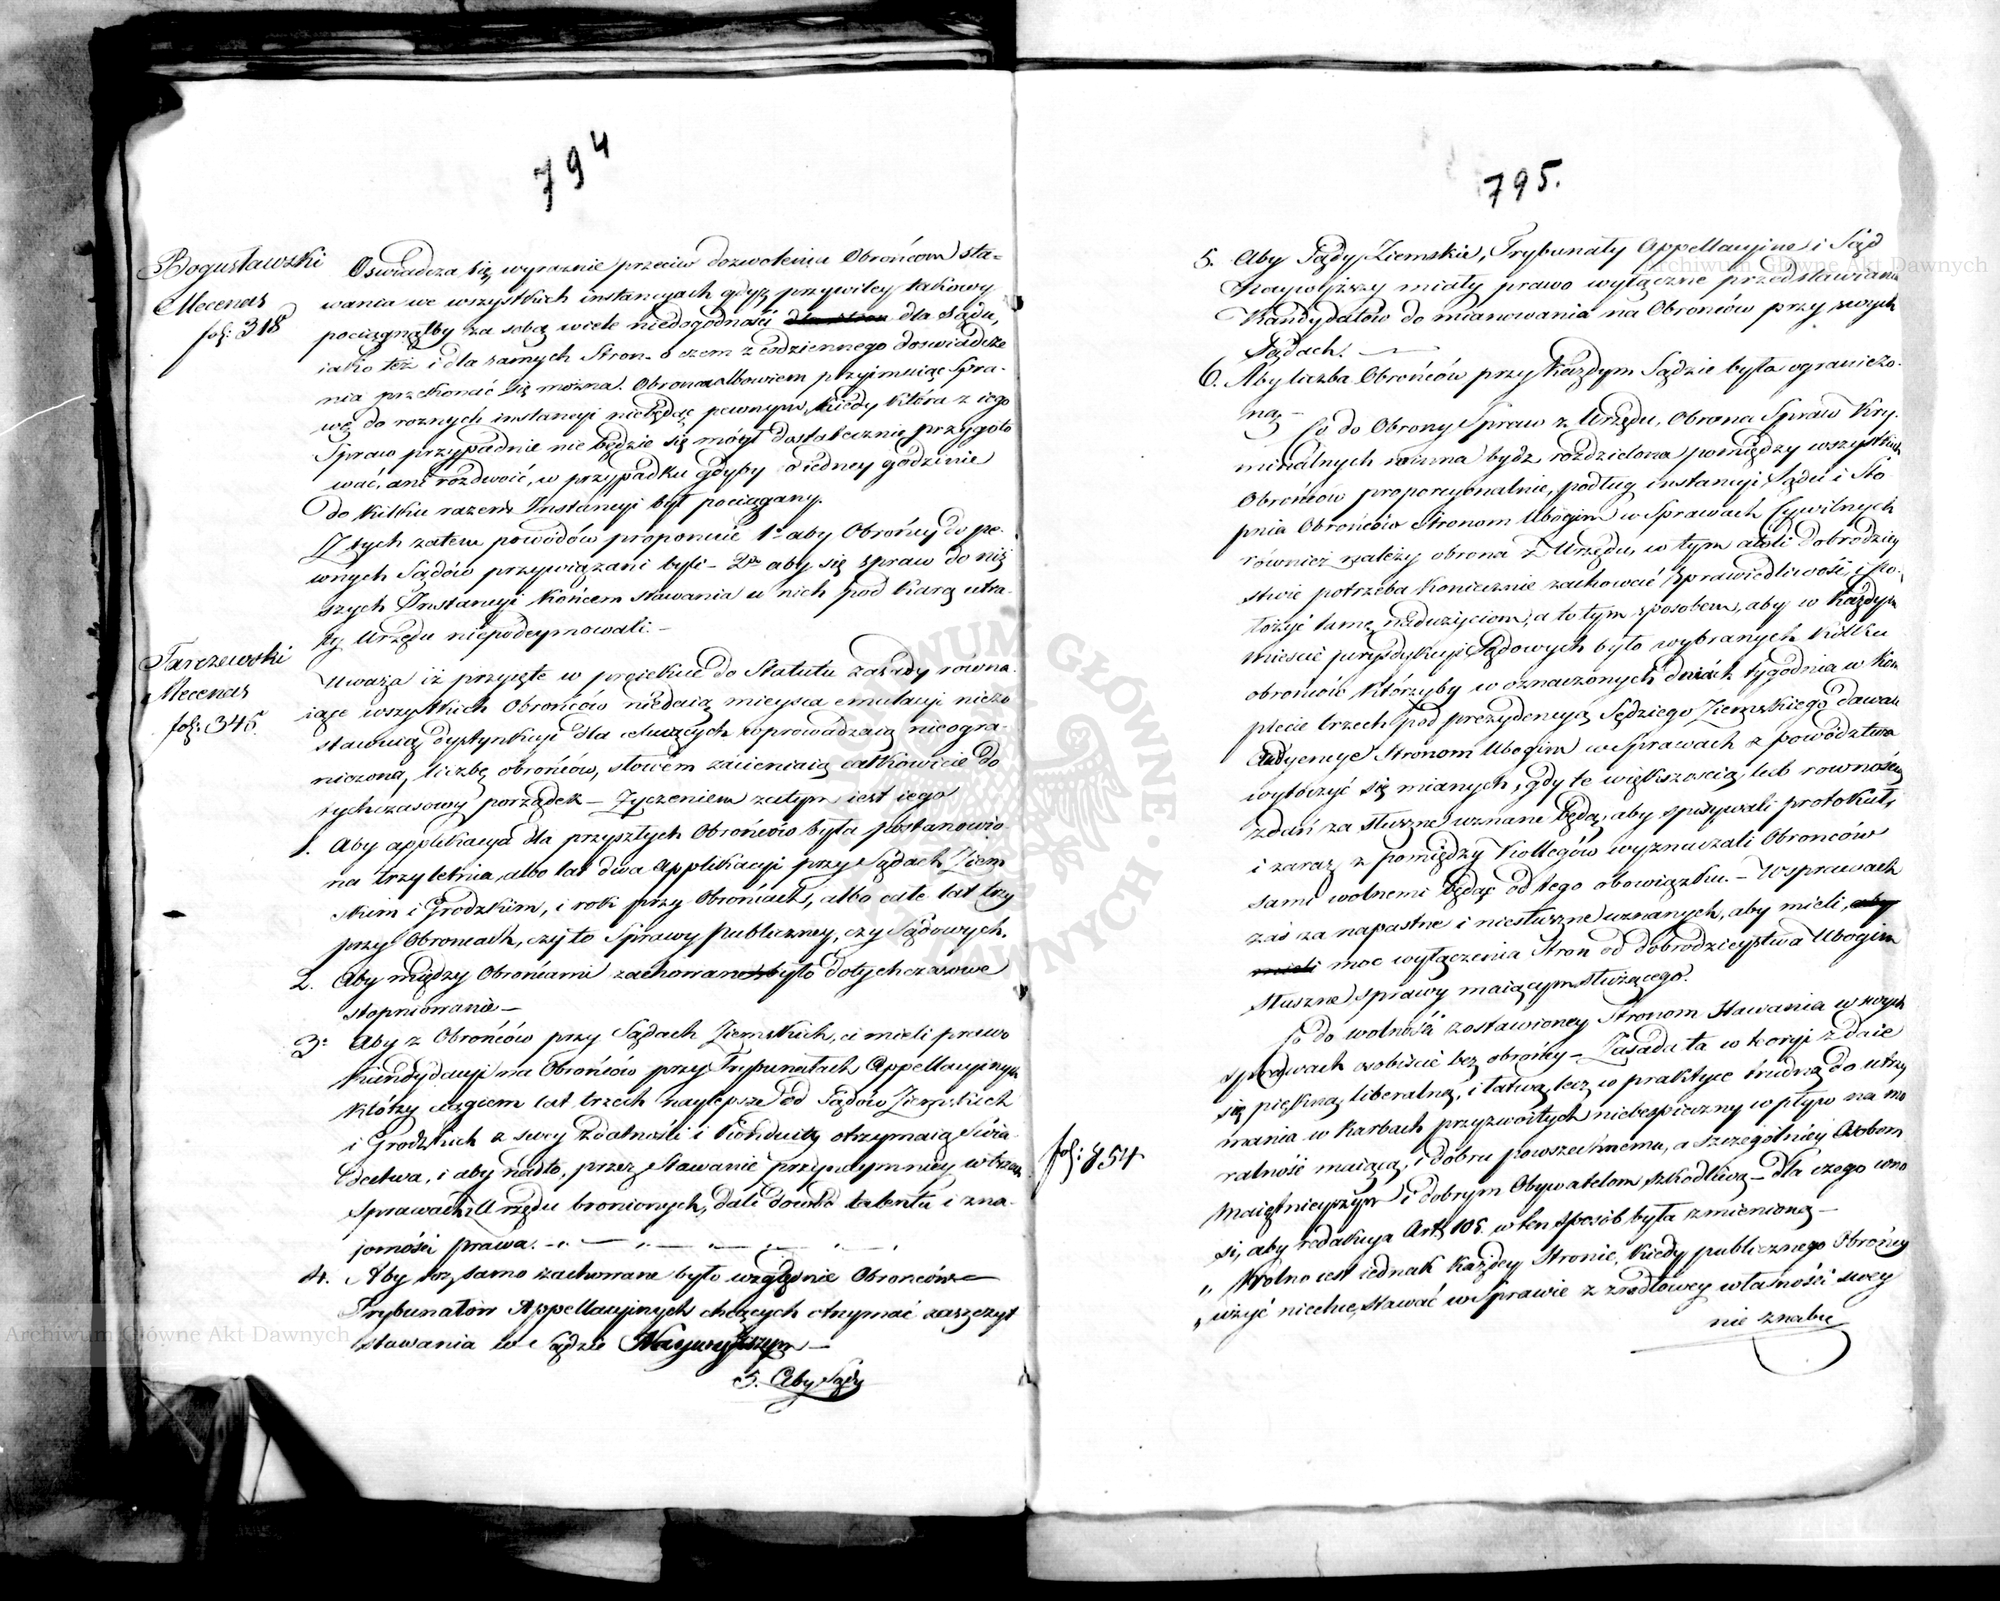 794
Bogusławski
Mecenas
fol: 318
Oswiadcza się wyraznie przeciw dozwoleniu Obrońcom sta-
wania we wszystkich instancyach gdyż przywiley takowy
pociągnąłby za sobą wiele niedogodności dla Sądu,
iako też i dla samych Stron o czem z codziennego doswiadcze
nia przekonać się można. Obronca albowiem przyimuiąc Spra-
wę do roznych instancyi niebędąc pewnym, kiedy która z iego
Spraw przypadnie nie będzie się mógł dostatecznie przygoto
wać, ani rozdwoić, w przypadku gdyby o iedney godzinie
do kilku razem Instancyi był pociągany.
Z tych zatem powodów proponuie 1º aby Obrońcy do pe-
wnych Sądów przywiązani byli – 2do aby się spraw do niż
szych Instancyi końcem stawania w nich pod karą utra-
ty Urzędu niepodeymowali. –
Tarczewski
Mecenas
fol: 345
Uważa iż przyięte w proiekcie do Statutu zasady równa
iące wszystkich Obrońców niedaią mieysca emulacyi niezo
stawuią dystynkcyi dla celuiących wprowadzaią nieogra-
niczoną liczbę obrońców, słowem zmieniaią całkowicie do
tychczasowy porządek – Życzeniem zatym iest iego
1. Aby applikacya dla przyszłych Obrońców była postanowio
na trzyletnia, albo lat dwa Applikacyi przy Sądach Ziem
skim i Grodzkim, i rok przy Obrońcach, albo całe lat trzy
przy Obroncach, czy to Sprawy publiczney, czy Sądowych.
2. Aby między Obroncami zachowane było dotychczasowe
stopniowanie –
3º Aby z Obrońców przy Sądach Ziemskich, ci mieli prawo
kandydacyi na Obrońców przy Trybunałach Appellacyinych
którzy ciągiem lat trzech naylepsze od Sądów Ziemskich
i Grodzkich z swey zdatności i konduity otrzymaią Swia-
dectwa, i aby nadto, przez stawanie przynaymniey w trzech
Sprawach z Urzędu bronionych, dali dowód talentu i zna-
jomości prawa.
4. Aby toż samo zachowane było względnie Obronców
Trybunałów Appellacyjnych chcących otrzymać zaszczyt
stawania w Sądzie Naywyższym –
5. Aby Sądy
795.
5. Aby Sądy Ziemskie, Trybunały Appellacyine i Sąd
Naywyższy miały prawo wyłączne przedstawiania
Kandydatów do mianowania na Obrońców przy swych
Sądach.
6. Aby liczba Obrońców przy każdym Sądzie była ograniczo-
ną –
Co do Obrony Spraw z Urzędu, Obrona Spraw Kry-
minalnych winna bydź rozdzielona pomiędzy wszystkich
Obrońców proporcyonalnie, podług instancyi Sądu i Sto
pnia Obrońców Stronom Ubogim w Sprawach Cywilnych
również należy obrona z Urzędu, w tym atoli dobrodziey
stwie potrzeba koniecznie zachować Sprawiedliwość, i po-
łożyć tamę nadużyciom, a to tym sposobem, aby w każdym
miescie jurysdykcyi Sądowych było wybranych kilku
obroncow którzyby w oznaczonych dniach tygodnia w kom
plecie trzech pod prezydencyą Sędziego Ziemskiego dawali
Audyencye Stronom Ubogim w Sprawach z powództwa
wytoczyć się mianych, gdy te większością lub rownością
zdań za słuszne uznane będą, aby spisywali protokuł,
i zaraz z pomiędzy Kollegów wyznaczali Obronców
sami wolnemi będąc od tego obowiązku. – W sprawach
zaś za napastne i niesłuszne uznanych, aby mieli,
moc wyłączenia Stron od dobrodzieystwa Ubogim
słuszne sprawy maiącym służącego.
Co do wolności zostawioney Stronom Stawania w swych
sprawach osobiście bez obrońcy – Zasada ta w teoryi zdaie
się piękną, liberalną, i łatwą, lecz w praktyce trudną do utrzy
mania w karbach przyzwoitych niebespieczny wpływ na mo
ralność maiącą, i dobru powszechnemu, a szczególniey Osobom
maiętnieyszym i dobrym Obywatelom szkodliwą – dla czego wno
si, aby redakcya Art: 105. w ten sposób była zmienioną –
fol: 854
„ Wolno iest iednak każdey Stronie, kiedy publicznego Obrońcy
„ użyć niechce, stawać w Sprawie z zrzodłowey własności swey
nie znabu
Archiwum Główne Akt Dawnych
Archiwum Główne Akt Dawnych